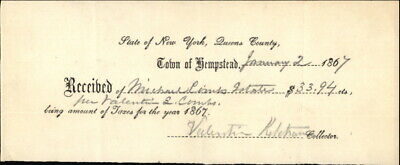 State of New York, Queens County,
Town of Hempstead, January 2 1867
Received of Michael Combs Estate $33.94 cts,
per Valentine Combs.
being amount of Taxes for the year 1867.
Valentin Collector.